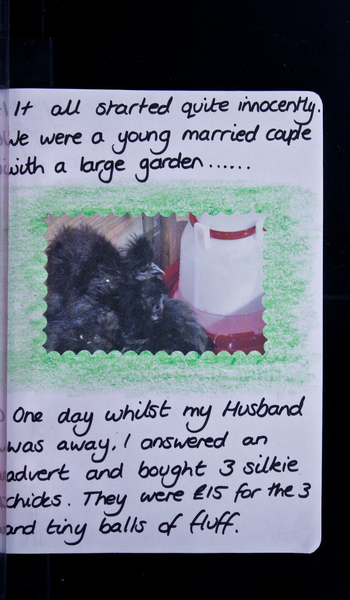 It all started quite innocently.
We were a young married cople
with a large garden......
One day whilst my Husband
was away, I answered an
advert and bought 3 silkie
chicks. They were £15 for the 3
and tiny balls of fluff.